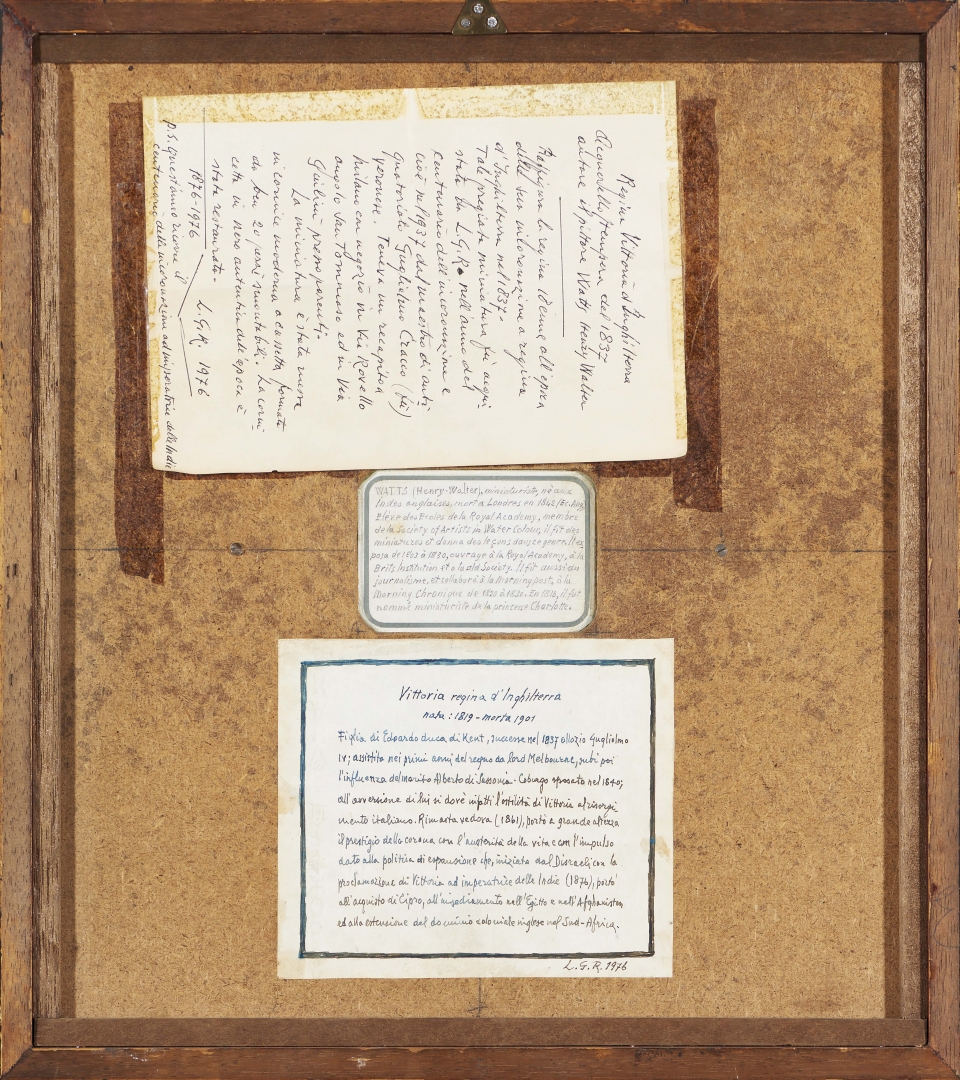 Regina Vittoria d'Inghilterra
Acquerello/tempera del 1837
autore il pittore Watts Henry Walter
Raffigura la regina 18enne all'epoca
della sua incoronazione a regina
d'Inghilterra nel 1837.
Tale pregiata miniatura fu acqui
stata da L.G.R. nell'anno del
centenario dell'incoronazione
cioè nel 1937 dal maestro di anti
quariato Guglielmo Cracco (fù)
veronese. Teneva un recapito a
Milano con negozio in Via Rovello
angolo San Tommaso ed in Via
Giulini presso parenti.
La miniatura è stata messa
in cornice moderna a cassetta, formata
da ben 20 pezzi smontabili. La corni
cetta in nero autentica dell'epoca è
stata restaurata.
L.G.R. 1976
1876-1976
P.S. Quest'anno ricorre il
centenario della incoronazione ad imperatrice delle Indie
WATTS (Henry-Walter), miniaturiste, né aux
Indes anglaises, mort a Londres en 1842 (Ec. Ang.
Elève des Ecoles de la Royal Academy, membre
de la Society of Artists in Water Colour, il fit des
miniatures et donna des leçons dans ce genre. Il ex
posa de 1803 à 1830, ouvrage à la Royal Academy, à la
Brits Institution et a la old Society. Il fit aussi du
journalisme, et collabora à la Morning post, à la
Morning Chronique de 1820 à 1830. En 1816, il fut
nommé miniaturiste de la princesse Charlotte.
Vittoria regina d'Inghilterra
nata: 1819 - morta 1901
Figlia di Edoardo duca di Kent, successe nel 1837 allo zio Guglielmo
IV; assistita nei primi anni del regno da lord Melbourne, subì poi
l'influenza del marito Alberto di Sassonia-Coburgo sposato nel 1840;
all'avversione di lui si dovè infatti l'ostilità di Vittoria al risorgi
mento italiano. Rimasta vedova (1861), portò a grande altezza
il prestigio della corona con l'austerità della vita e con l'impulso
dato alla politica di espansione che, iniziata dal Disraeli con la
proclamazione di Vittoria ad imperatrice delle Indie (1876), portò
all'acquisto di Cipro, all'insediamento nell'Egitto e nell'Afghanistan,
ed alla estensione del dominio coloniale inglese nel Sud-Africa.
L.G.R. 1976